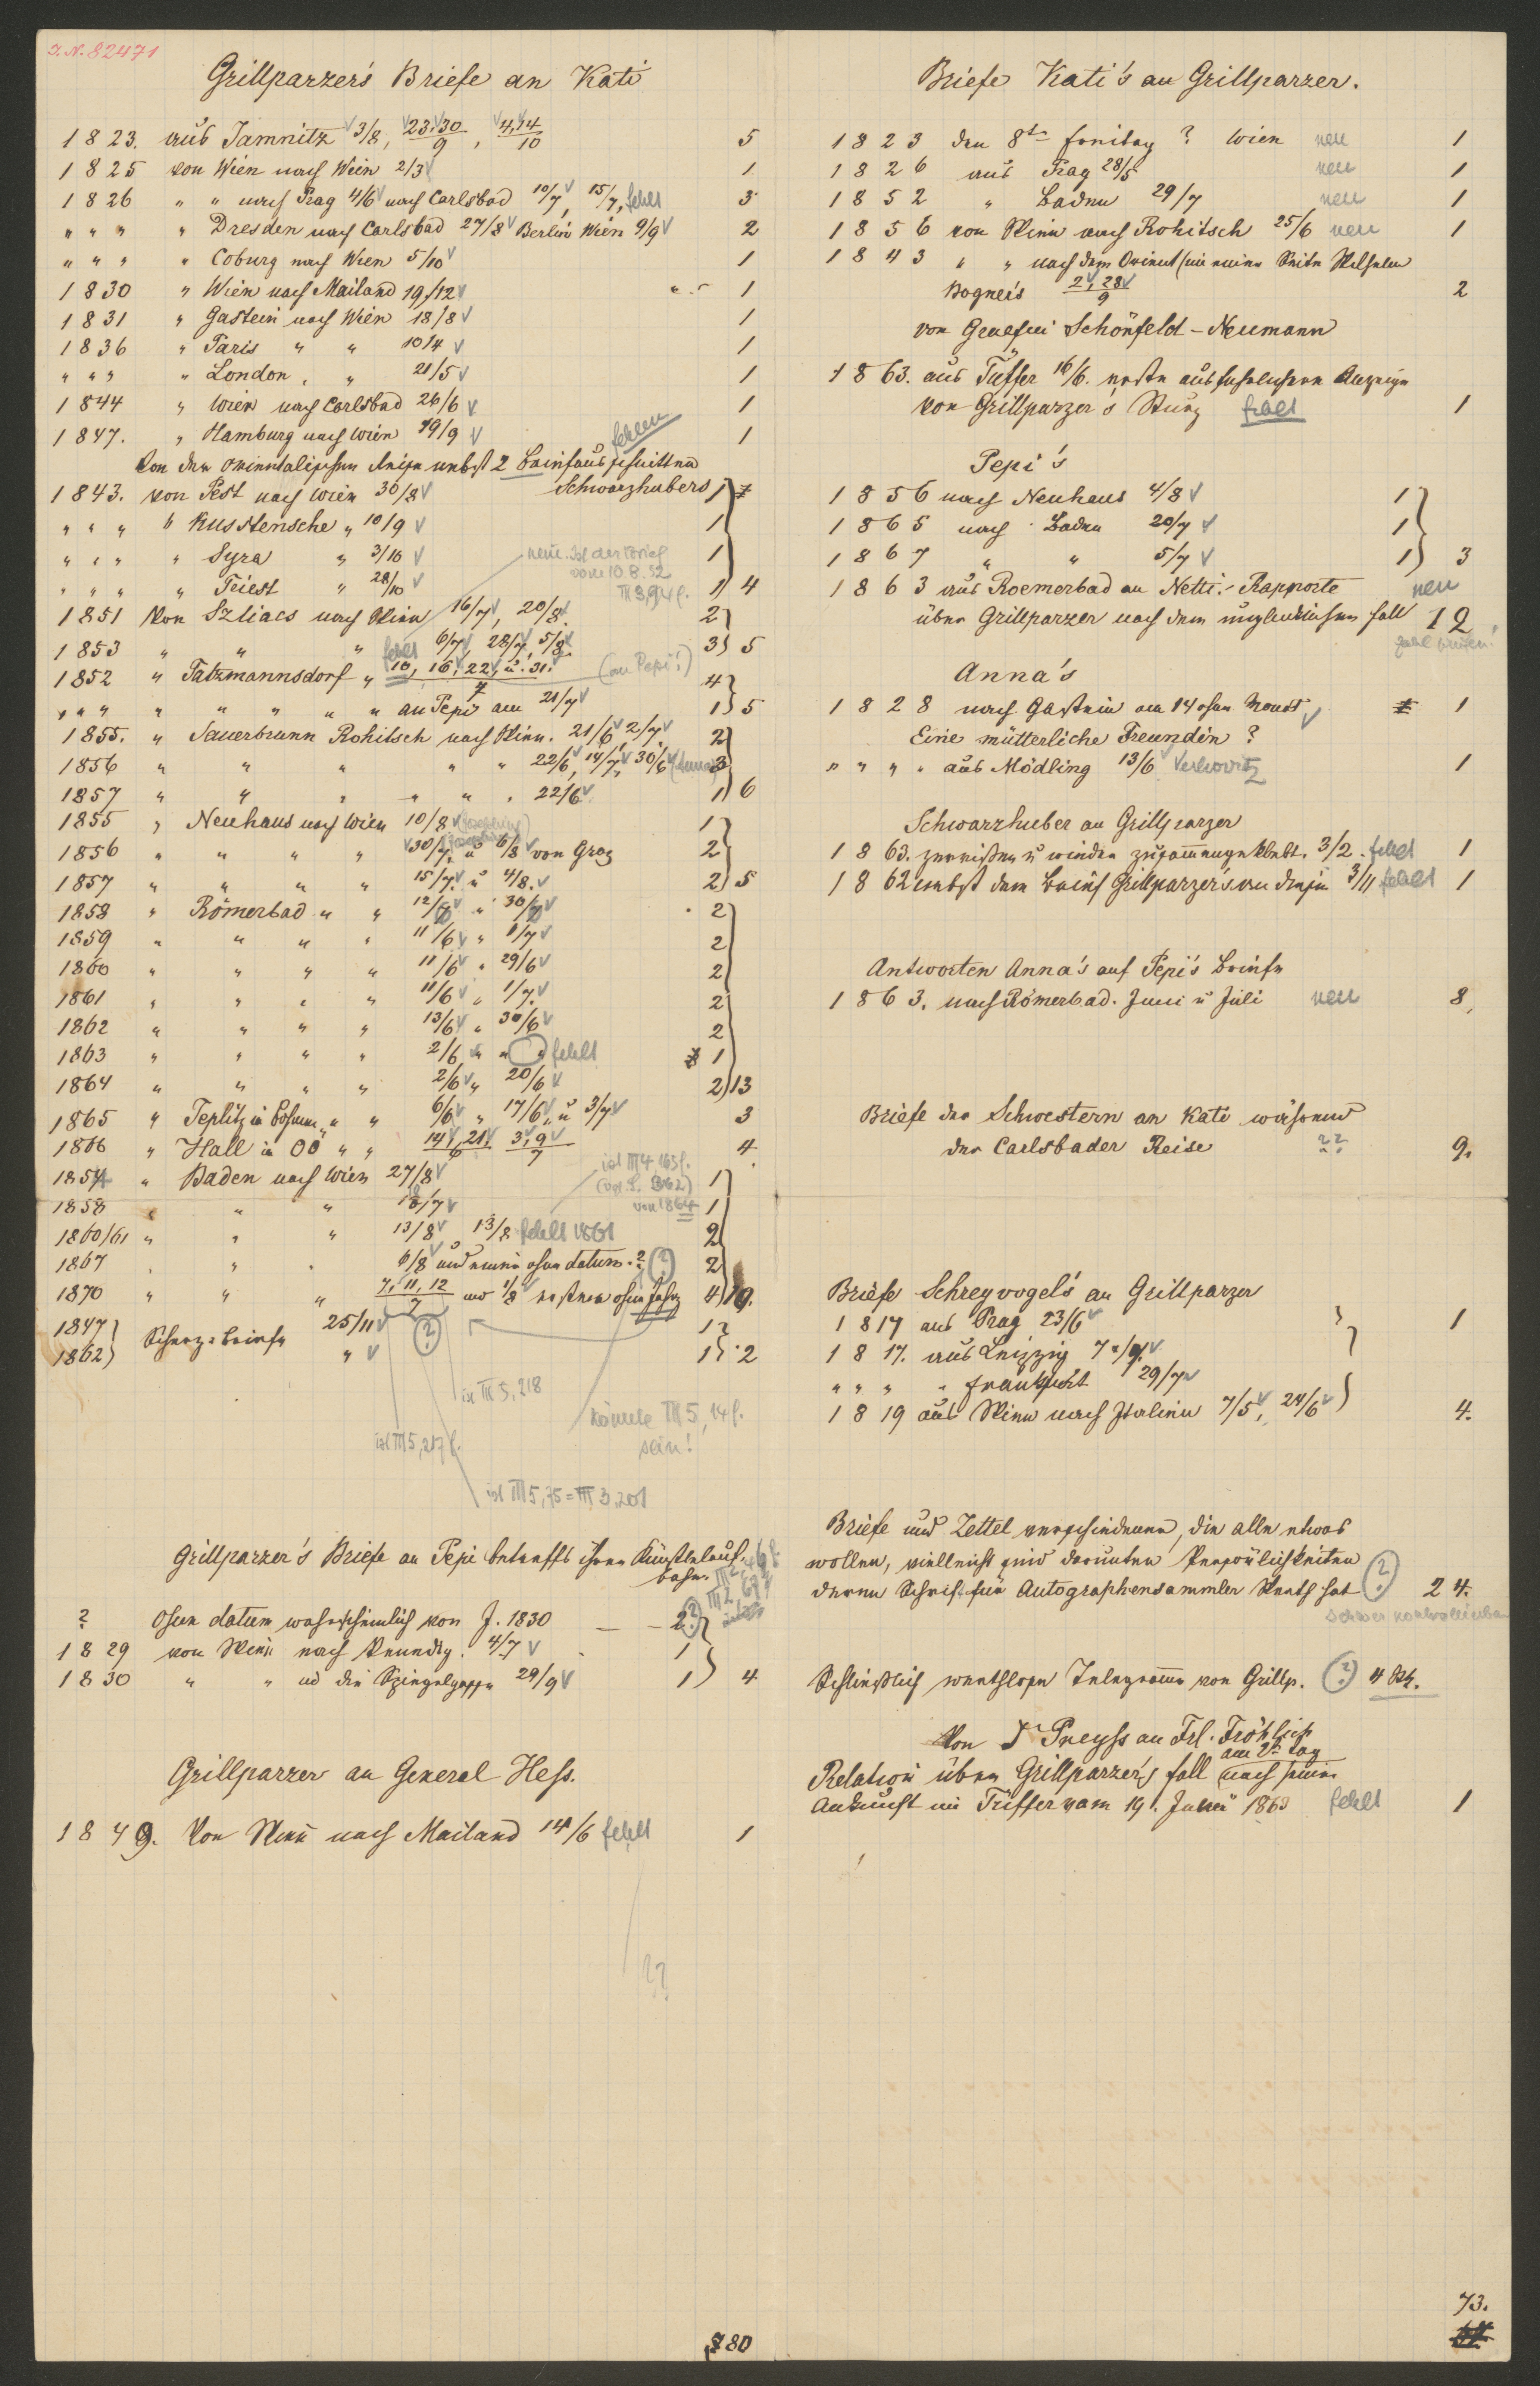 I.N. 82471
Grillparzer's Briefe an Kati
1823. aus Jamnitz 3/8, 23. 30/9, 4, 14/10 5
1825 von Wien nach Wien 2/3 1
1826 " " nach Prag 4/6 nach Carlsbad 10/7, 15/7, fehlt 3
" " " " Dresden nach Carlsbad 27/8 Berlin Wien 9/9 2
" " " " Coburg nach Wien 5/10 1
1830 " Wien nach Mailand 19/12 1
1831 " Gastein nach Wien 18/8 1
1836 " Paris " " 10/4 1
" " " " London " " 21/5 1
1844 " Wien nach Carlsbad 26/6 1
1847. " Hamburg nach Wien 19/9 1
fehlen
Von der orientalischen Reise nebst 2 Briefausschnitten
Schwarzhubers
1843. von Pest nach Wien 30/8 1
" " " " Kusstensche " 10/9 1
" " " " Syra " 3/10 1
" " " " Triest " 28/10 1 4
neue. Ist der Brief
vom 10.8.52
III 3, 94 f.
1851 Von Szliacs nach Wien 16/7, 20/8. 2
1853 " " " fehlt 6/7, 28/7, 5/8 3 5
1852 " Tatzmannsdorf " 10, 16, 22, u. 31./7 (an Pepi!) 4
" " " " " " " " an Pepi am 21/7 1 5
1855. " Sauerbrunn Rohitsch nach Wien. 21/6 2/7 2
1856 " " " " " 22/6, 14/7, 30/6 (Anna) 3
1857 " " " " " " 22/6 1 6
1855 " Neuhaus nach Wien 10/8 1
1856 " " " " 30/7. u 6/8 von Graz 2
1857 " " " " 15/7. u 4/8. 2 5
1858 " Römerbad " " 12/7 " 30/7 2
1859 " " " " 11/6 " 1/7 2
1860 " " " " 11/6 " 29/6 2
1861 " " " " 11/6 " 1/7. 2
1862 " " " " 13/6 " 30/6 2
1863 " " " " 2/6 " " fehlt 1
1864 " " " " 2/6 " 20/6 2 13
1865 " Teplitz in Böhmen " " 6/6 " 17/6 u 3/7 3
1866 " Hall in OÖ " " 14, 21./6 3, 9/7 4
1854 " Baden nach Wien 27/8 1
ist III 4, 163 f.
(vgl. S. 362)
von 1864
1858 " " " 18/7 1
1860/61 " " " 13/8, 13/8 fehlt 1861 2
1867 " " " 6/8 und einer ohne datum. ? (?) 2
1870 " " " 7, 11, 12/7 und 1/8 ersterer ohne Jahr 4 10.
1847 Scherz-Briefe 25/11 (?) 1
1862 " 1 2
ist III 5, 218
könnte III 5, 14 f.
sein!
ist III 5, 217 f.
ist III 5, 75 = III 3, 201
Grillparzer's Briefe an Pepi betreffs ihrer Künstlerlauf-
bahn.
? Ohne datum wahrscheinlich von J. 1830 — - 2
1829 von Wien nach Venedig. 4/7 1
1830 " " in die Spiegelgasse 29/9 1 4
Grillparzer an General Hess.
1849. Von Wien nach Mailand 14/6 fehlt 1
??
80
Briefe Kati's an Grillparzer.
1823 den 8ten Freitag ? Wien neu 1
1826 aus Prag 28/5 neu 1
1852 " Baden 29/7 neu 1
1856 von Wien nach Rohitsch 25/6 neu 1
1843 " " nach dem Orient (mit einer Seite Wilhelm
Bogner's 2, 28/9 2
von Graefin Schönfeld-Neumann
1863. aus Tüffer 16/6. erste ausführlichere Anzeige
von Grillparzer's Sturz fehlt 1
Pepi's
1856 nach Neuhaus 4/8 1
1865 nach Baden 20/7 1
1867 " " 5/7 1 3
1863 aus Roemerbad an Netti. Rapporte neu
über Grillparzer nach dem unglücklichen Fall 12
Anna's
1828 nach Gastein am 14 ohne Monat 1
Eine mütterliche Freundin ?
" " " " aus Mödling 13/6 Verhovitz 1
Schwarzhuber an Grillparzer
1863. zerrissen u wieder zusammengeklebt. 3/2 fehlt 1
1862 nebst dem Brief Grillparzer's an diesen 3/11 fehlt 1
Antworten Anna's auf Pepi's Briefe
1863. nach Römerbad. Juni u Juli neu 8,
Briefe der Schwestern an Kati während
der Carlsbader Reise ?? 9.
Briefe Schreyvogel's an Grillparzer
1817 aus Prag 23/6 1
1817. aus Leipzig
" " " " Frankfurt 29/7
1819 aus Wien nach Italien 7/5, 24/6 4.
Briefe und Zettel verschiedener, die alle etwas
wollen, vielleicht sind darunter Persönlichkeiten
deren Schrift für Autographensammler Werth hat (?) 24.
schwer kontrollierbar
Schließlich werthlose Telegramme von Grillp. (?) 4 Stk.
Von Dr Preyss an Frl. Fröhlich
Relation über Grillparzer's Fall am 2ten Tag nach seiner
Ankunft in Tüffer vom 19. Juni 1863 fehlt 1
73.